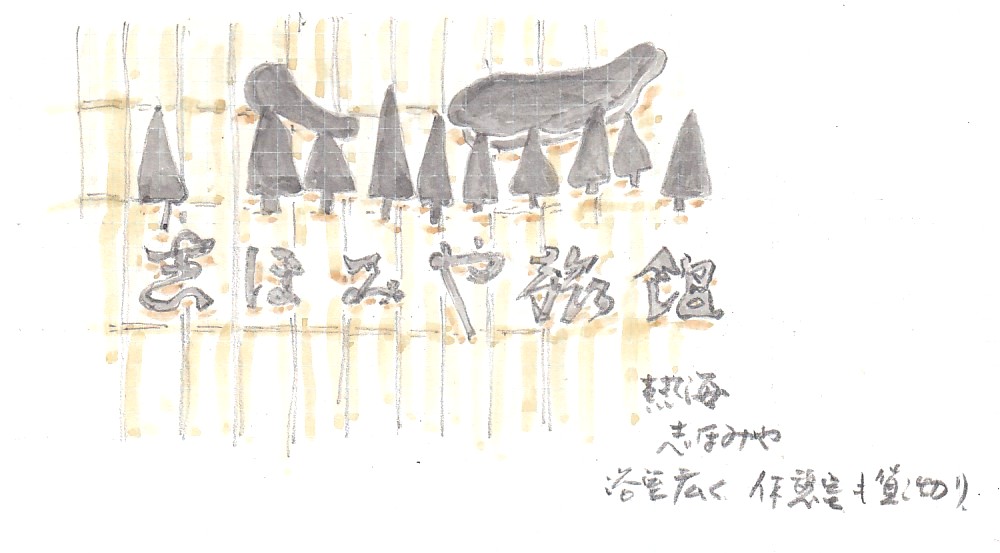 志ほみや旅館
熱海
志ほみや
浴室広く 休憩室も貸し切り